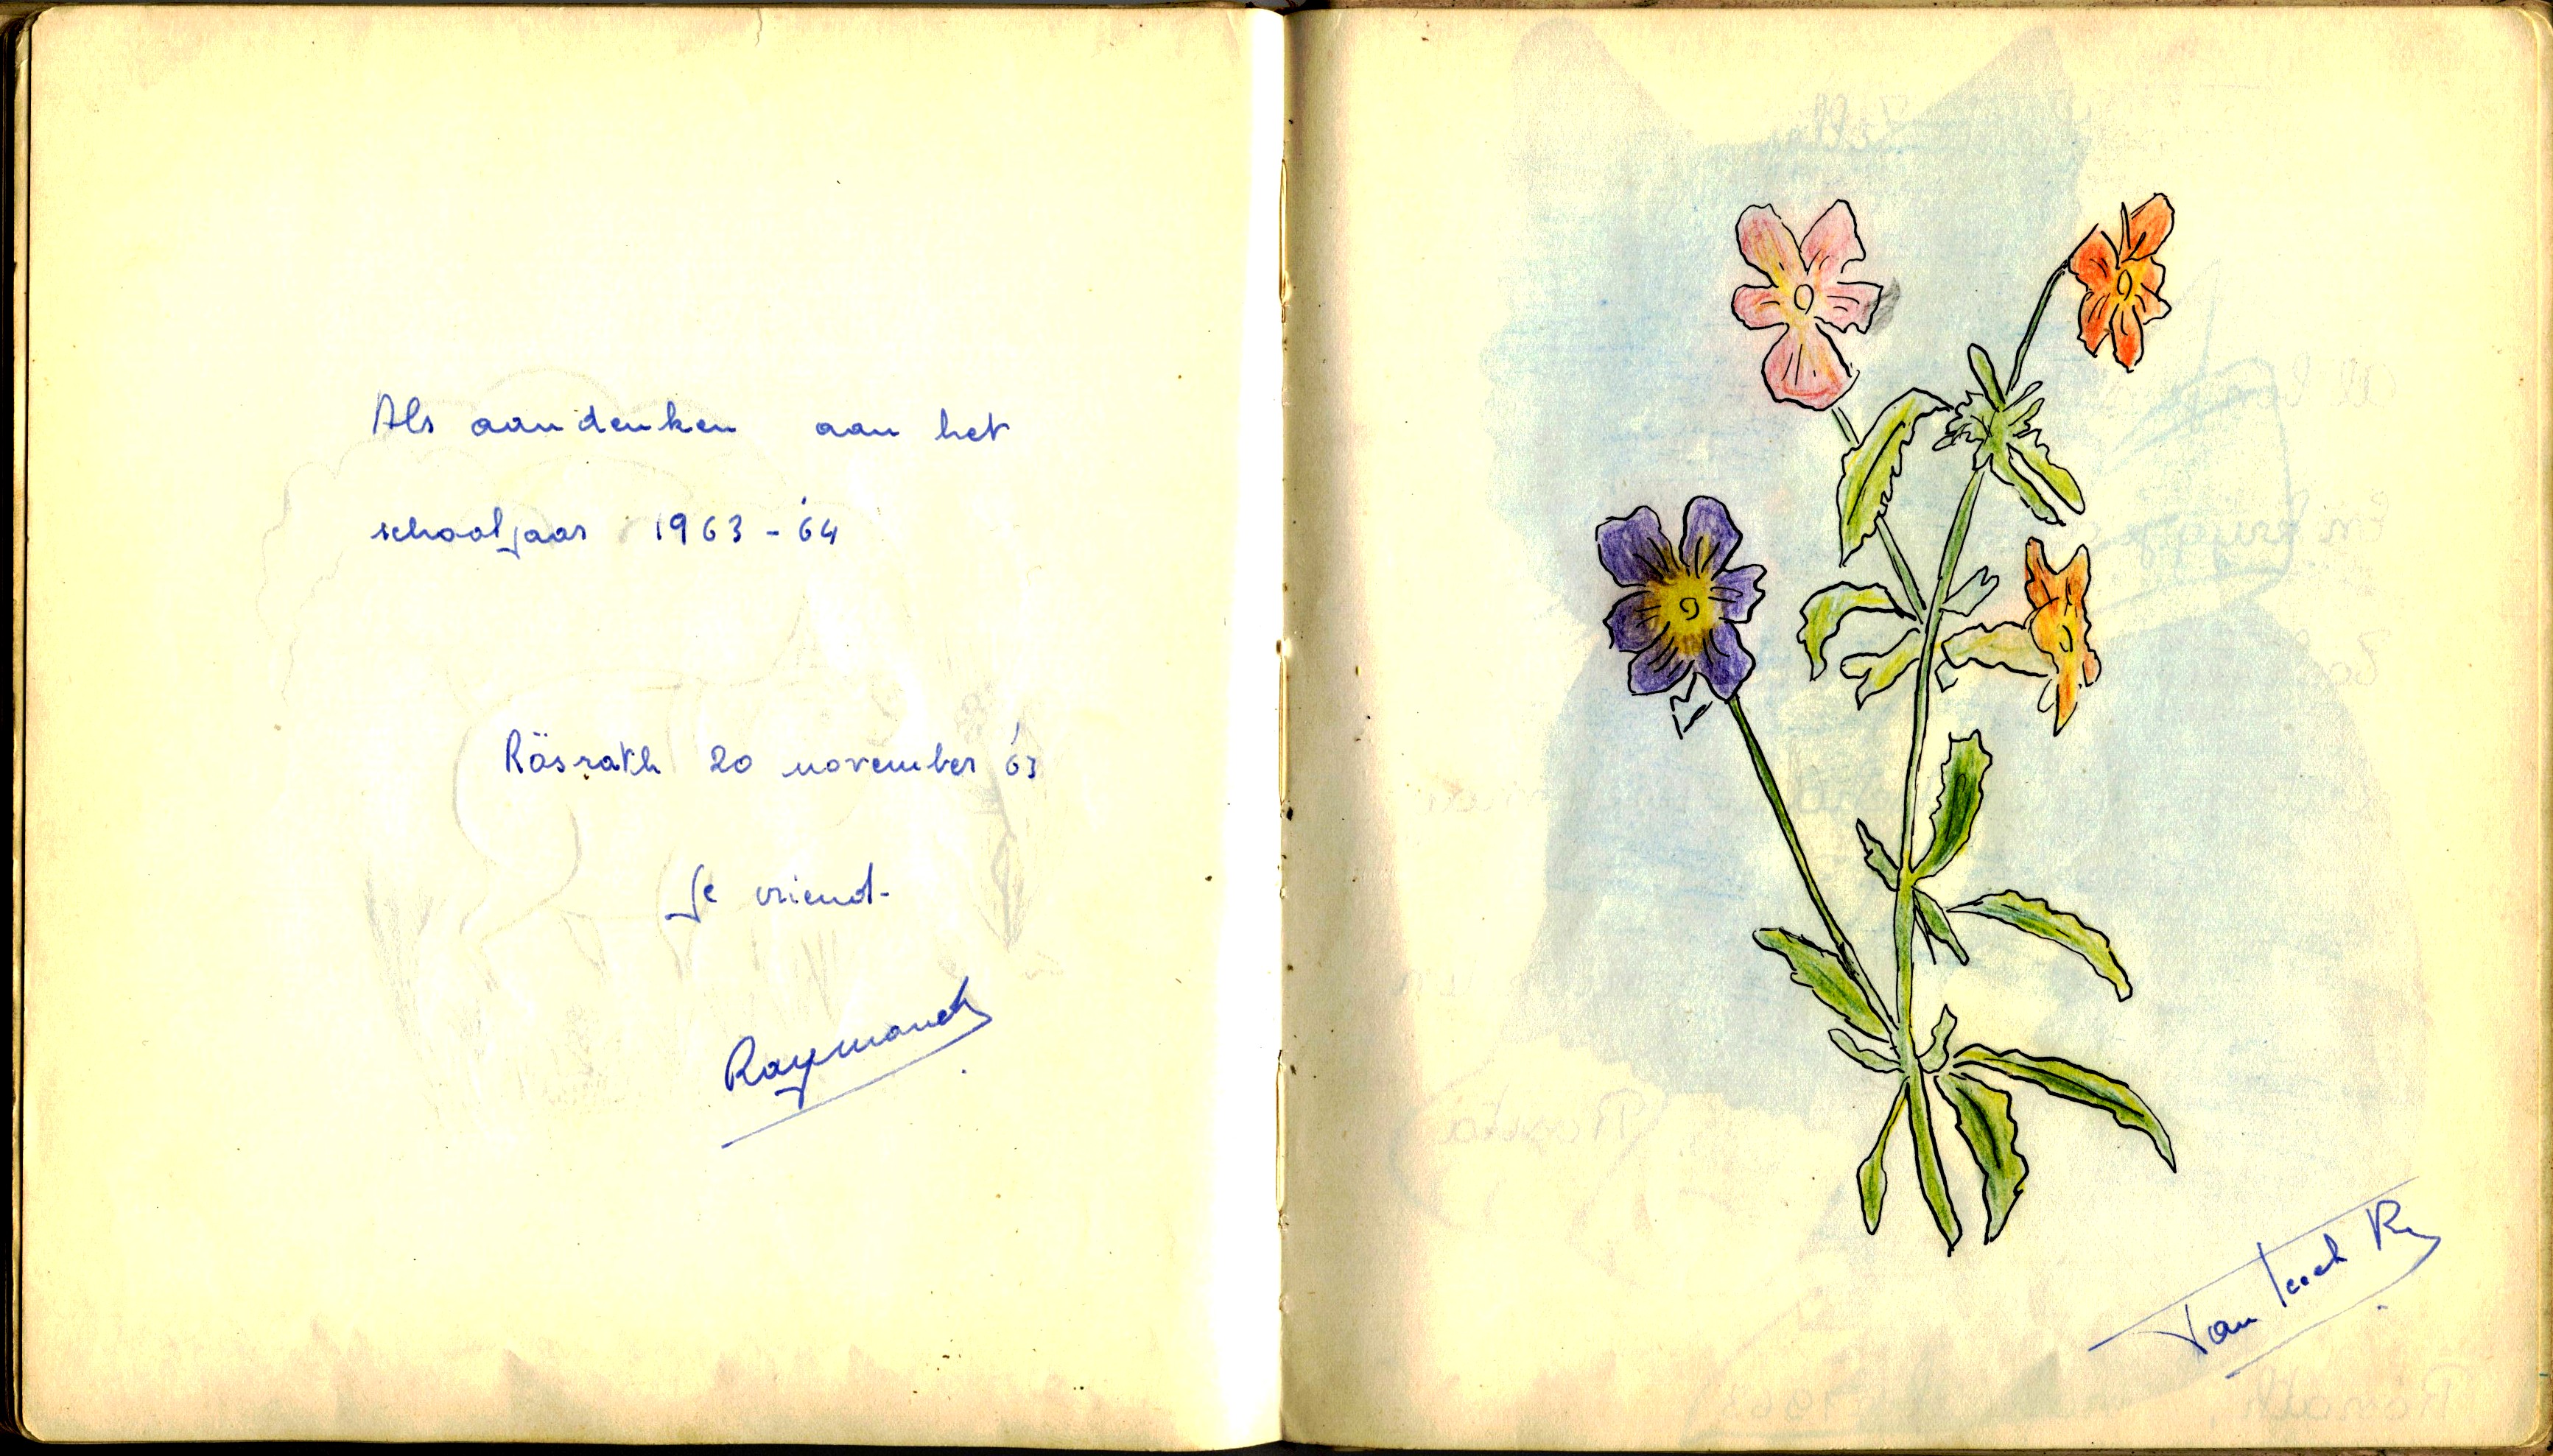 Als aandenken aan het
schooljaar 1963-'64
Rösrath 20 november '63
Je vriend.
Raymond
Van R.